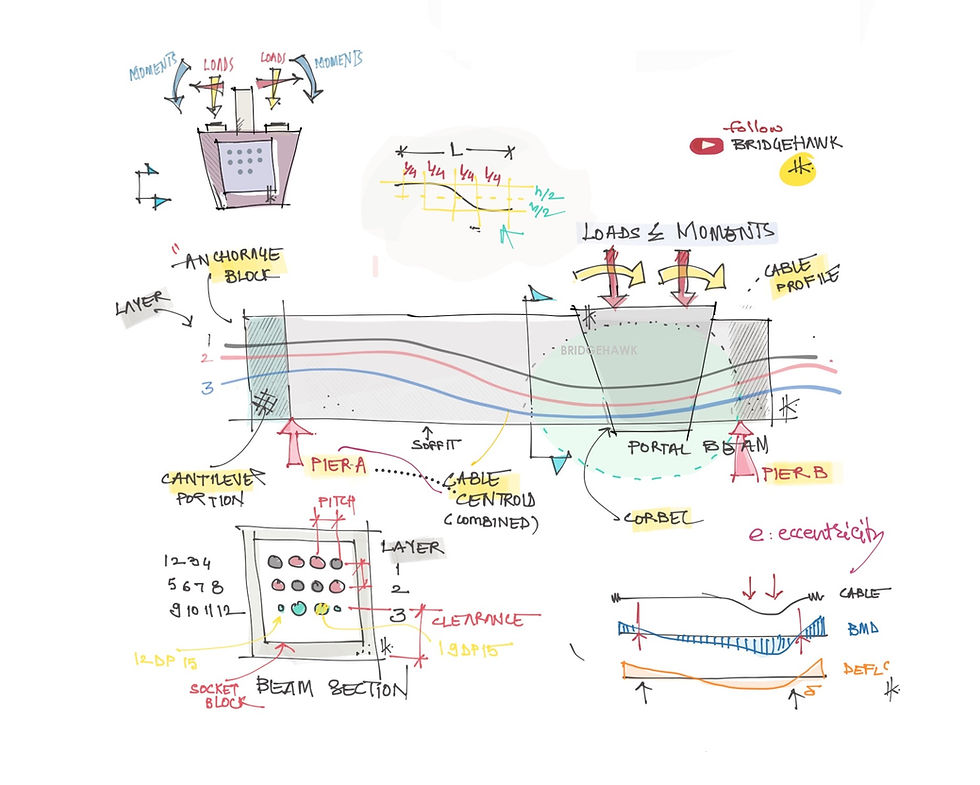 MOMENTS
LOADS
LOADS
MOMENTS
follow
BRIDGEHAWK
L
L/4 L/4 L/4 L/4
h/2
h/2
LOADS & MOMENTS
"ANCHORAGE
BLOCK
CABLE
PROFILE
LAYER
1
2
3
BRIDGEHAWK
SOFFIT
PORTAL BEAM
PIER A
PIER B
CANTILEVER
PORTION
CABLE
CENTROID
(COMBINED)
CORBEL
PITCH
LAYER
1 2 3 4
1
5 6 7 8
2
9 10 11 12
3
CLEARANCE
12DP15
19DP15
SOCKET
BLOCK
BEAM SECTION
e: eccentricity
CABLE
BMD
DEFLC
δ